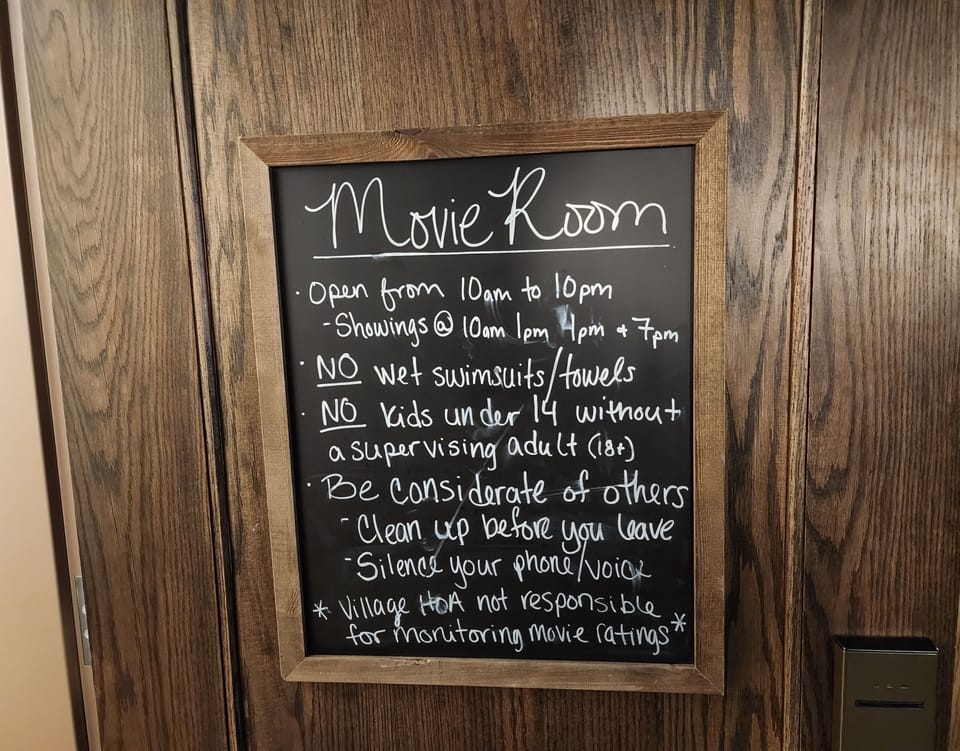 Movie Room
· Open from 10am to 10pm
- Showings @ 10am 1pm 4pm + 7pm
· NO wet swimsuits/towels
· NO kids under 14 without
a supervising adult (18+)
· Be considerate of others
- Clean up before you leave
- Silence your phone/voice
* Village HOA not responsible
for monitoring movie ratings *